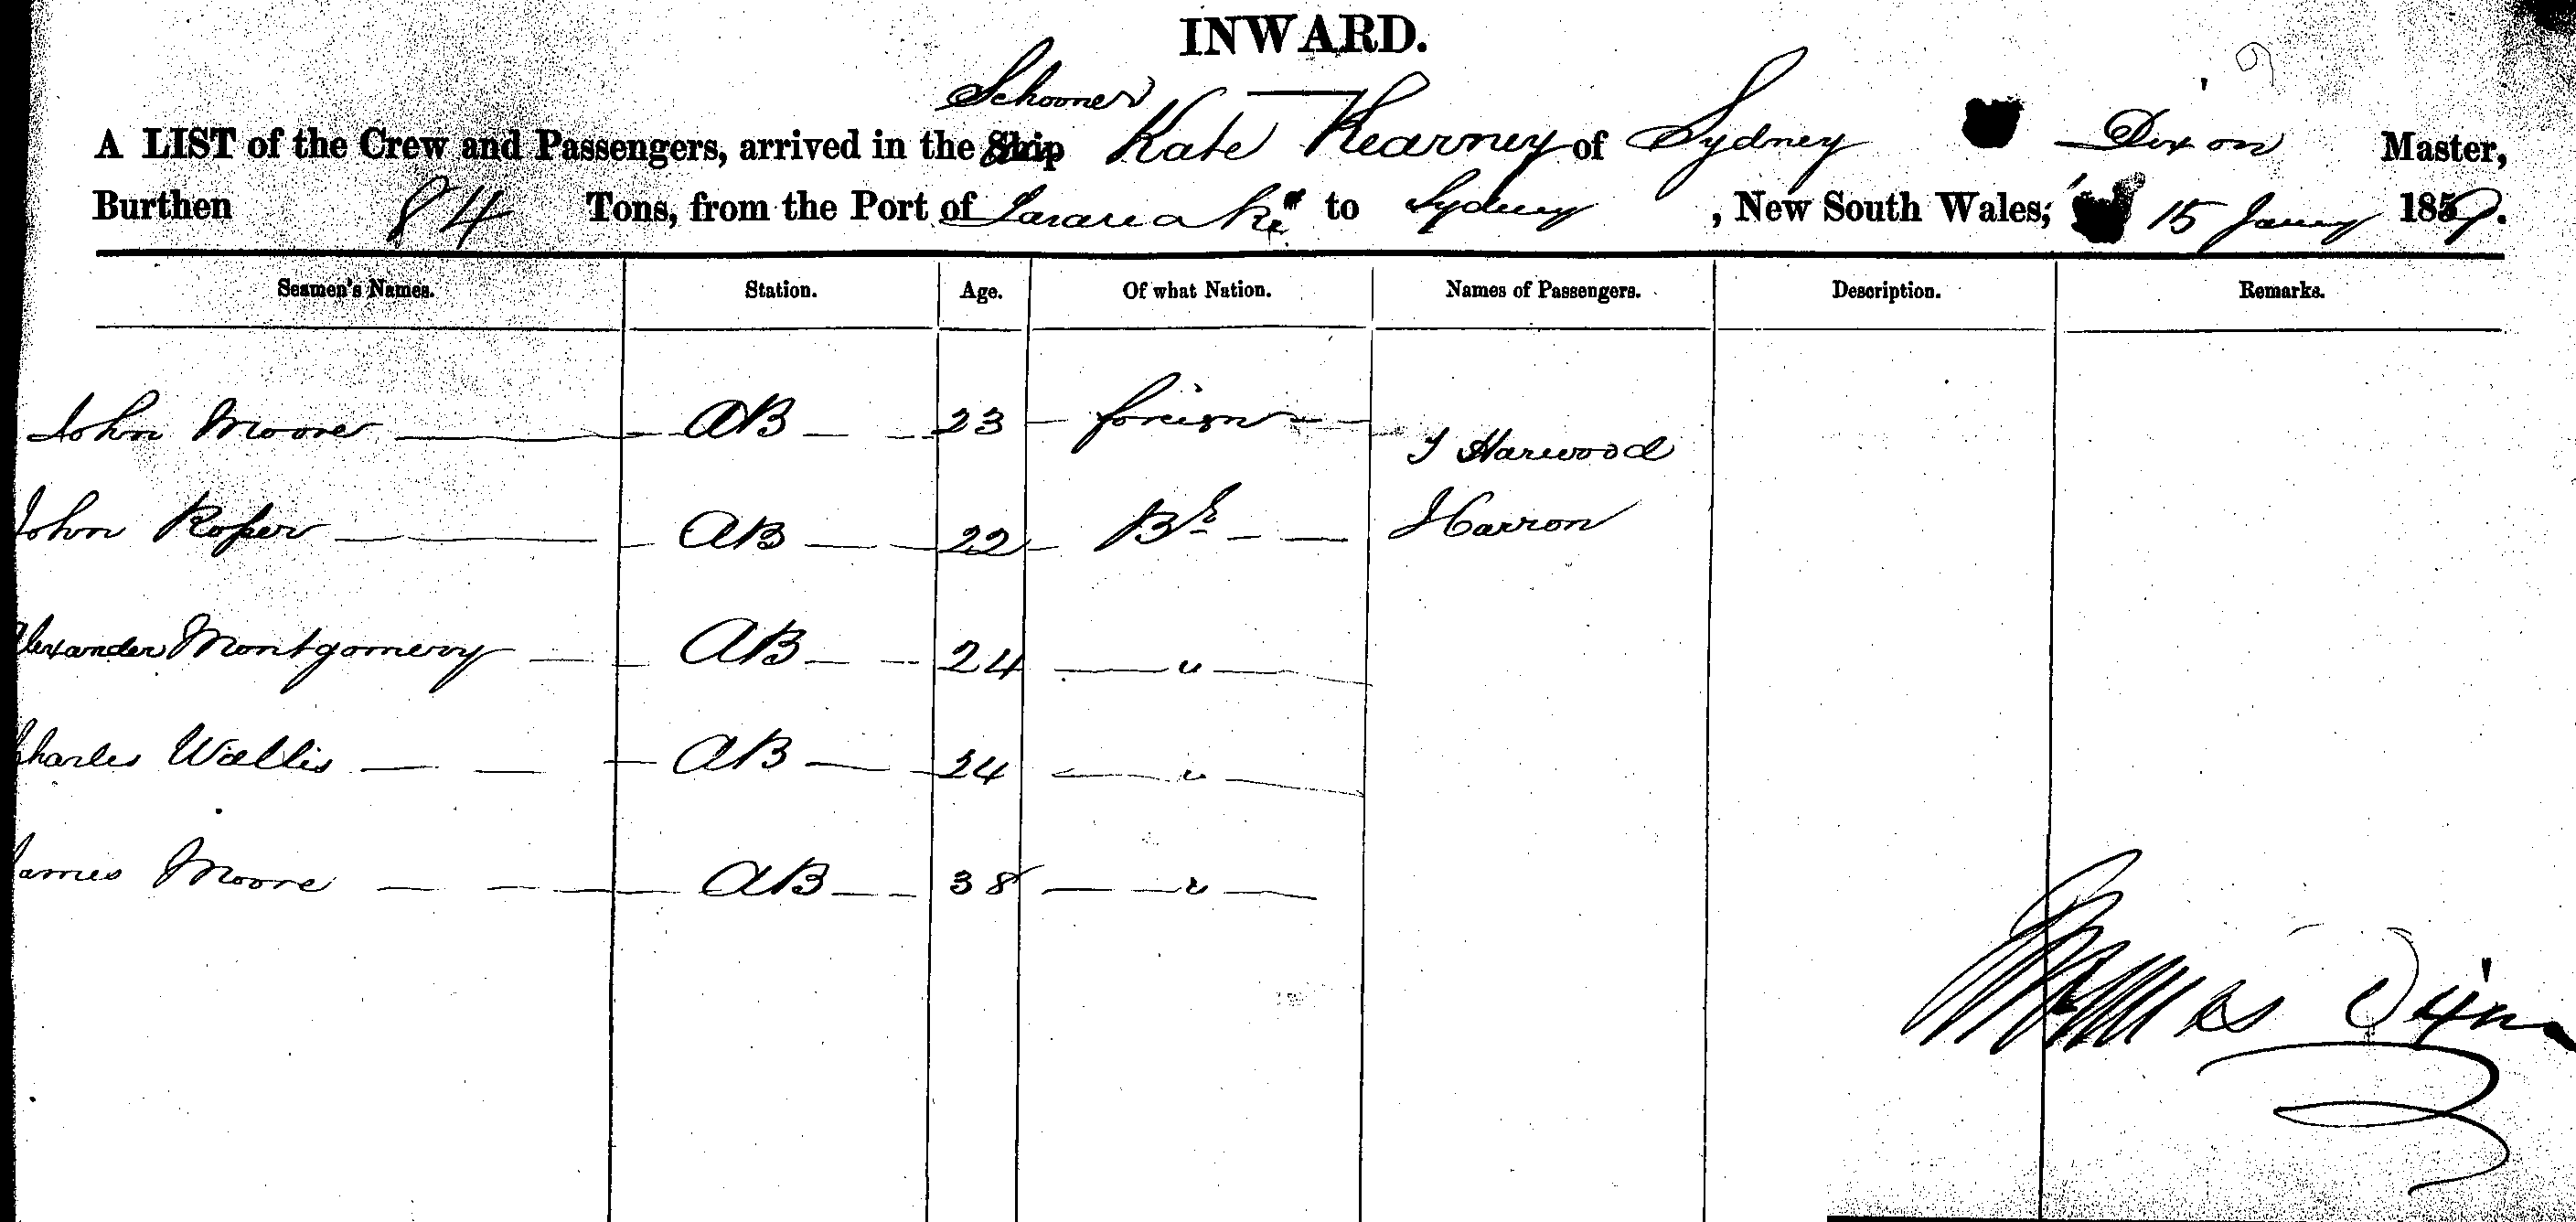 INWARD.
Schooner
A LIST of the Crew and Passengers, arrived in the Ship Kate Kearney of Sydney Dixon Master,
Burthen 84 Tons, from the Port of Taranaki to Sydney, New South Wales, 15 Jany 1859.
Seamen's Names. Station. Age. Of what Nation. Names of Passengers. Description. Remarks.
John Moore AB 23 foreign
J Harwood
John Roper AB 22 Br Harron
Alexander Montgomery AB 24 "
Charles Wallis AB 24 "
James Moore AB 38 "
Dixon